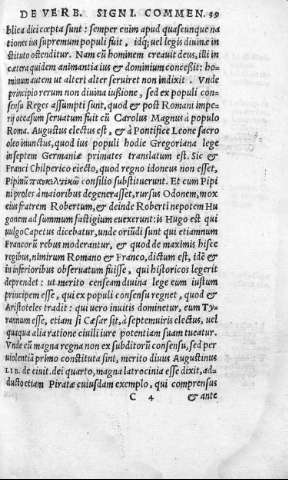 DE VERB. SIGNI. COMMEN. 19
blica dici cœpta sunt: semper enim apud quascunque na
tiones ius supremum populi fuit, idq; uel legis diuinæ in
stituto ostenditur. Nam cũ hominem creauit deus, illi in
cætera quidem animantia ius & dominium concessit: ho=
minum autem ut alteri alter seruiret non indixit. Vnde
principio rerum non diuina iussione, sed ex populi con=
sensu Reges assumpti sunt, quod & post Romani impe=
rij occasum seruatum fuit cũ Carolus Magnus à populo
Roma. Augustus electus est, & à Pontifice Leone sacro
oleo inunctus, quod ius populi hodie Gregoriana lege
in septem Germaniæ primates translatum est. Sic &
Franci Chilperico eiecto, quod regno idoneus non esset,
Pipinũ consilio substituerunt. Et cum Pipi
ni proles à maioribus degenerasset, rursus Odonem, mox
eius fratrem Robertum, & deinde Roberti nepotem Hu
gonem ad summum fastigium euexerunt: is Hugo est qui
uulgo Capetus dicebatur, unde oriũdi sunt qui etiamnum
Francorũ rebus moderantur, & quod de maximis hisce
regibus, nimirum Romano & Franco, dictum est, idẽ &
in inferioribus obseruatum fuisse, qui historicos legerit
deprendet: ut merito censeam diuina lege eum iustum
principem esse, qui ex populi consensu regnet, quod &
Aristoteles tradit: qui uero inuitis dominetur, eum Ty=
rannum esse, etiam si Cæsar sit, à septemuiris electus, uel
quaqua alia ratione ciuili iure potentiam suam tueatur.
Vnde cũ magna regna non ex subditorũ consensu, sed per
uiolentiã primo constituta sint, merito diuus Augustinus
LIB. de ciuit. dei quarto, magna latrocinia esse dixit, ad=
ducto etiam Piratæ cuiusdam exemplo, qui comprensus
C 4 & ante